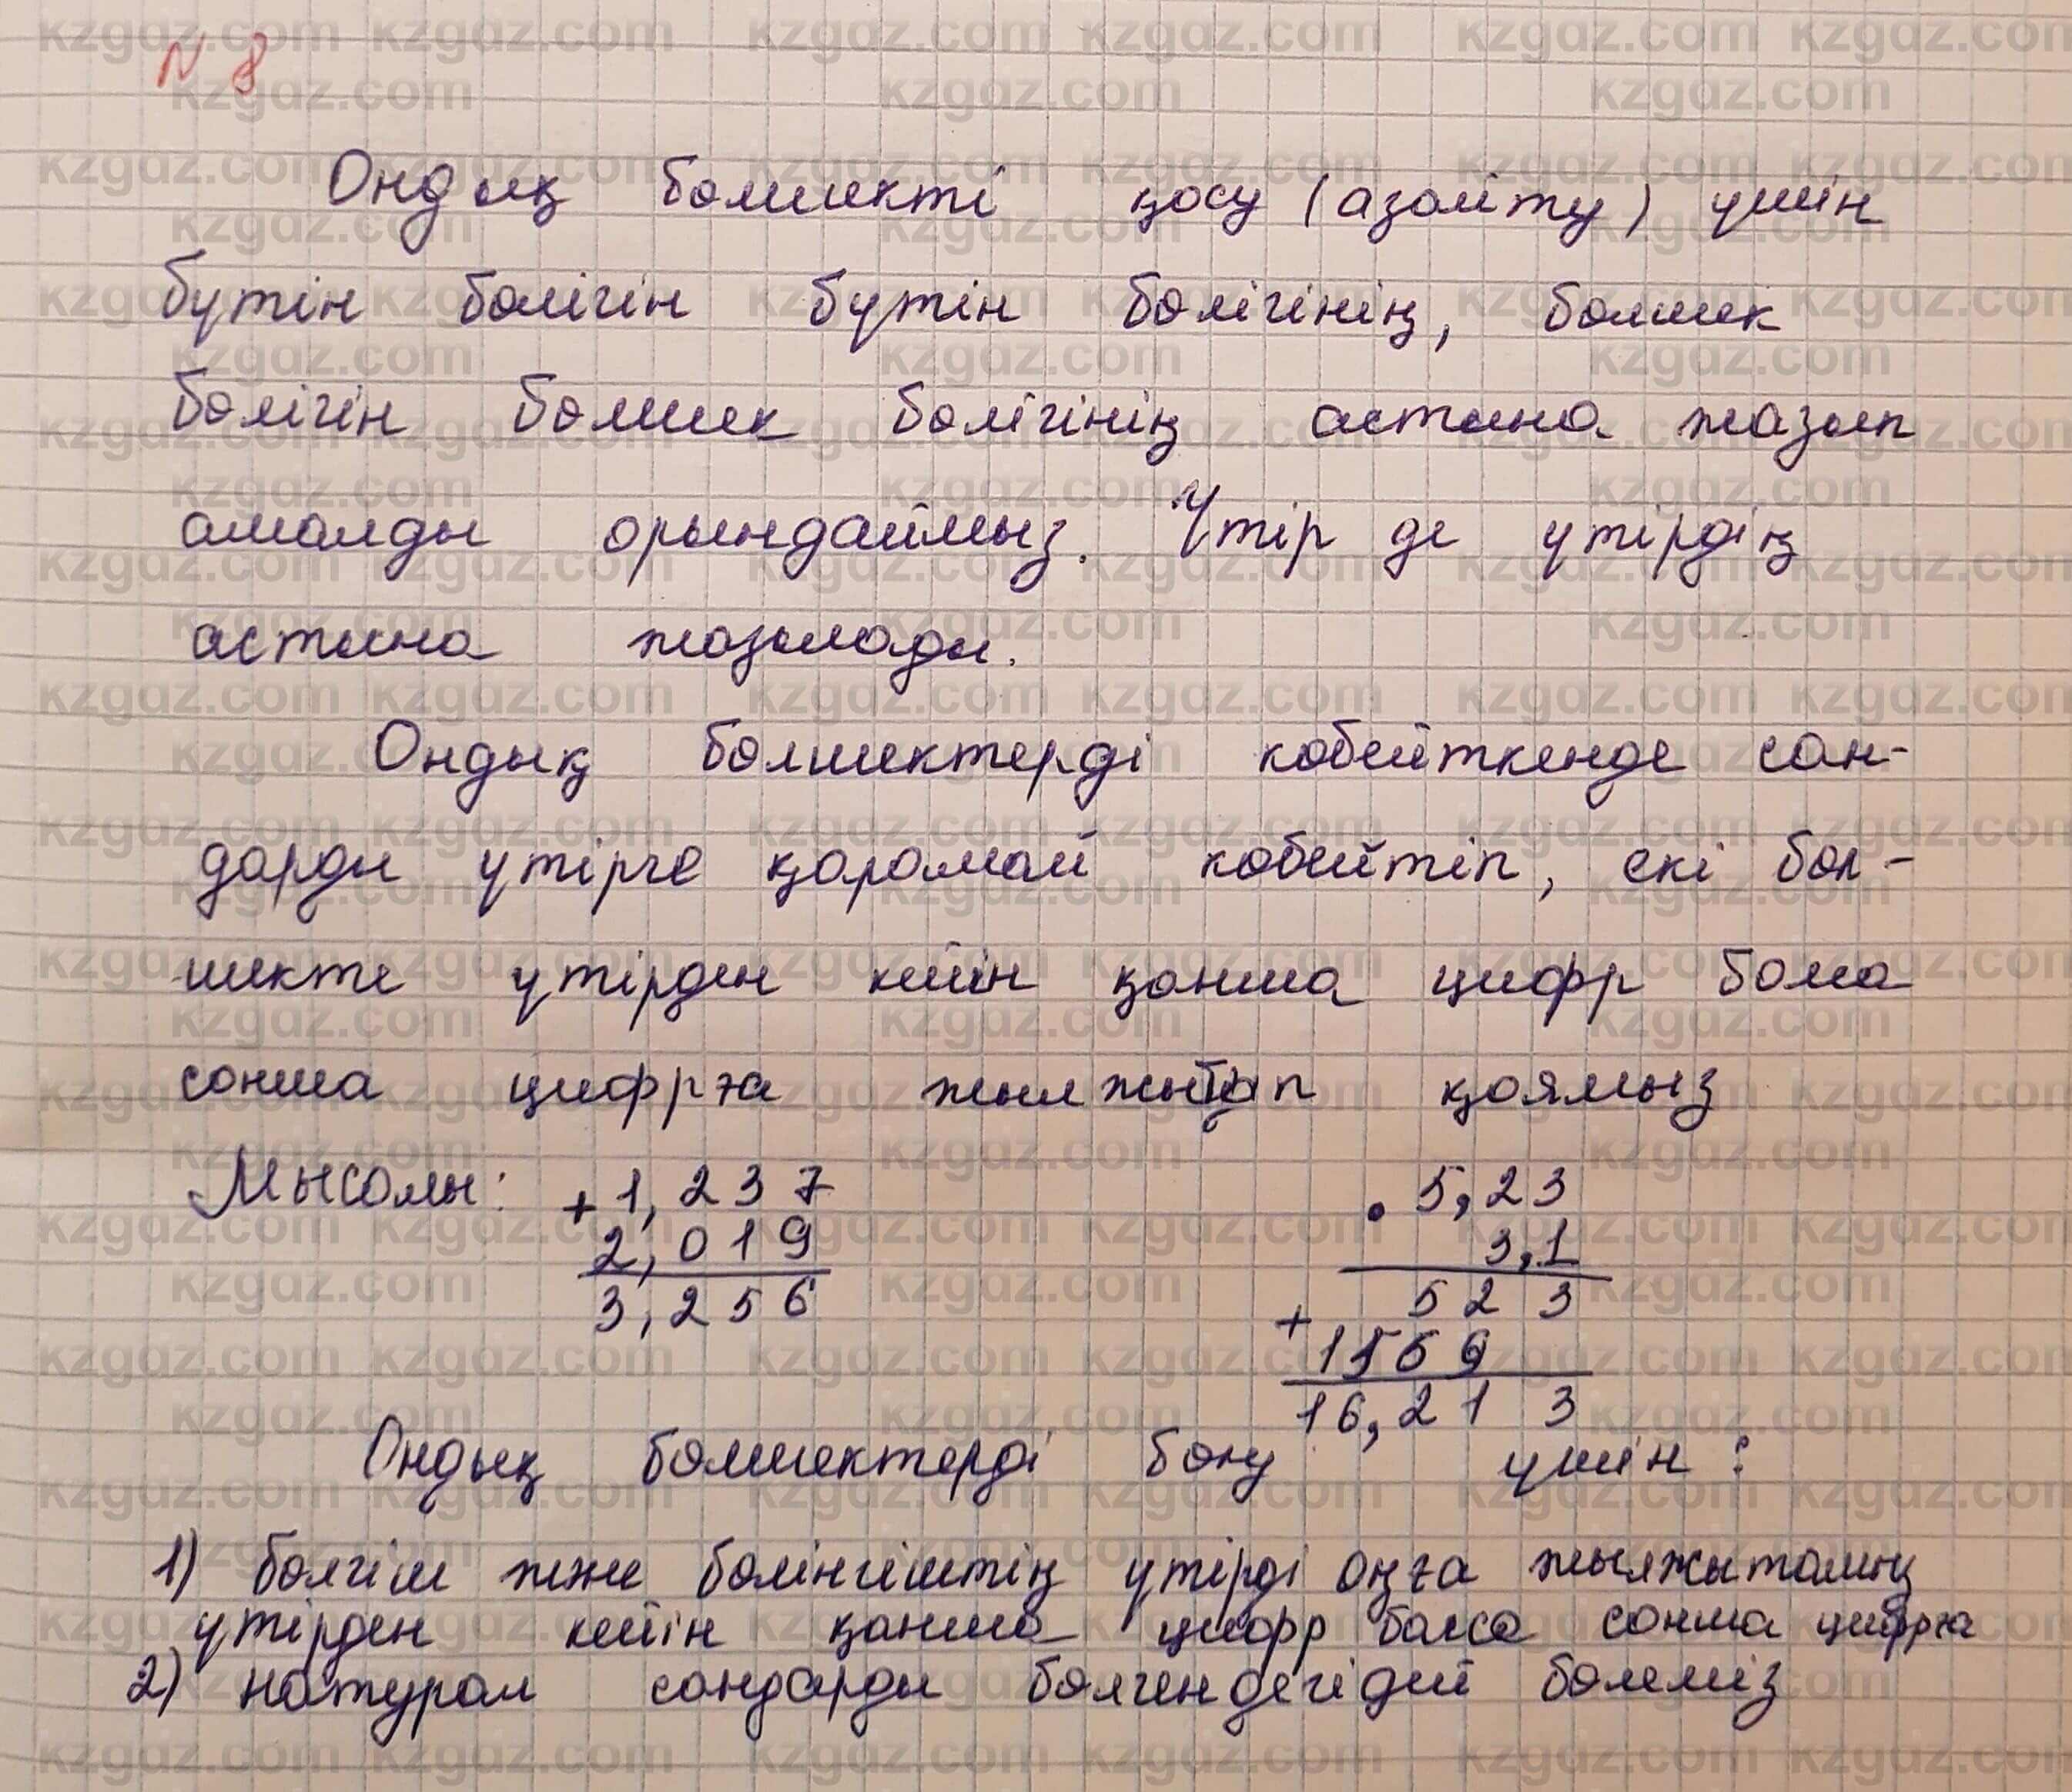 N 8
Ондық бөлшекті қосу (азайту) үшін
бүтін бөлігін бүтін бөлігінің, бөлшек
бөлігін бөлшек бөлігінің астына жазып
амалды орындаймыз. Үтір де үтірдің
астына жазылады.
Ондық бөлшектерді көбейткенде сан-
дарды үтірге қарамай көбейтіп, екі бөл-
шекте үтірден кейін қанша цифр бола
сонша цифрға жылжытып қоямыз
Мысалы: + 1,237 . 5,23
2,019 3,1
3,256 523
+ 1569
16,213
Ондық бөлшектерді бөлу үшін:
1) бөлгіш және бөлінгіштің үтірді оңға жылжытамыз
үтірден кейін қанша цифр болса сонша цифрға
2) натурал сандарды бөлгендегідей бөлеміз